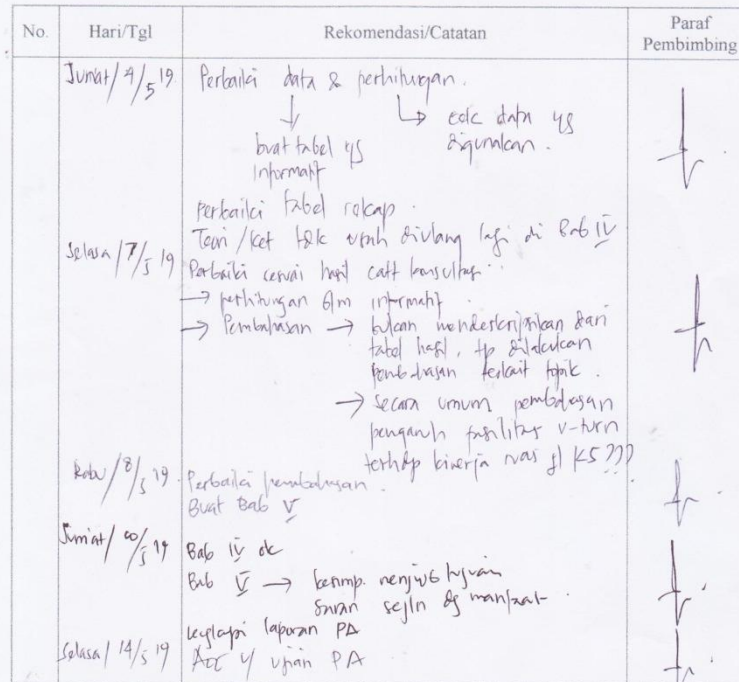 No. Hari/Tgl Rekomendasi/Catatan Paraf Pembimbing
Jumat / 4/5 19 Perbaiki data & perhitungan.
↓ ↳ cek data yg
buat tabel yg digunakan.
informatif
Perbaiki tabel rekap.
Teori / ket tdk usah diulang lagi di Bab IV
Selasa / 7/5 19 Perbaiki sesuai hasil catt konsultasi
→ perhitungan blm informatif
→ Pembahasan → bukan menderskripsikan dari
tabel hasil, tp dilakukan
pembahasan terkait topik.
→ secara umum pembahasan
pengaruh fasilitas u-turn
terhdp kinerja ruas jl KS???
Rabu / 8/5 19 Perbaiki pembahasan.
Buat Bab V
Jum'at / 10/5 19 Bab IV ok
Bab V → kesimp. menjwb tujuan
saran sejln dg manfaat.
Lengkapi laporan PA
Selasa / 14/5 19 Acc u/ ujian PA